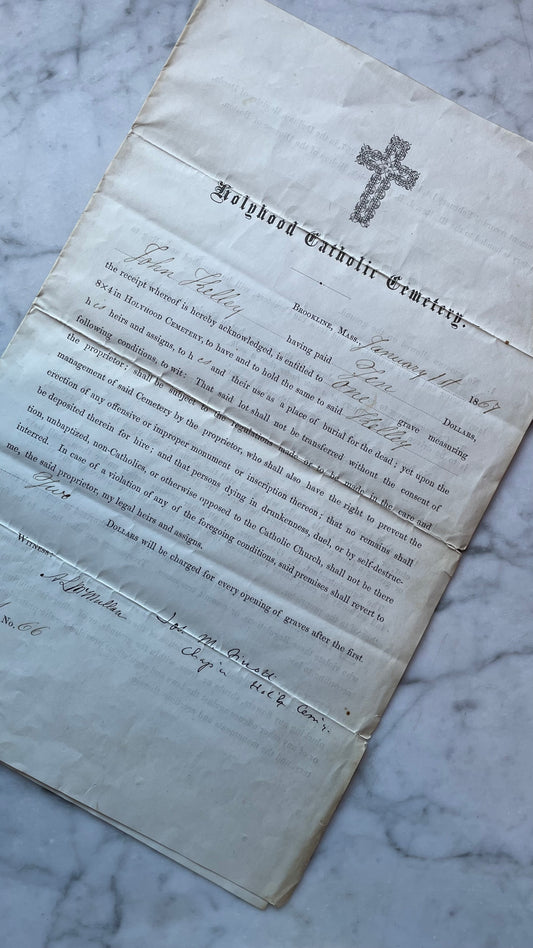 Holyhood Catholic Cemetery.
Brookline, Mass., January 1st 1867
John Kelley having paid Ten Dollars,
the receipt whereof is hereby acknowledged, is entitled to One grave measuring
8×4 in Holyhood Cemetery, to have and to hold the same to said Kelley
h is heirs and assigns, to h is and their use as a place of burial for the dead; yet upon the
following conditions, to wit: That said lot shall not be transferred without the consent of
the proprietor; shall be subject to the regulations made, or to be made, in the care and
management of said Cemetery by the proprietor, who shall also have the right to prevent the
erection of any offensive or improper monument or inscription thereon; that no remains shall
be deposited therein for hire; and that persons dying in drunkenness, duel, or by self-destruc-
tion, unbaptized, non-Catholics, or otherwise opposed to the Catholic Church, shall not be there
interred. In case of a violation of any of the foregoing conditions, said premises shall revert to
me, the said proprietor, my legal heirs and assigns.
Five Dollars will be charged for every opening of graves after the first.
Witness:
McMullen
Jos. M.
Chap'n Cem'y.
No. 66